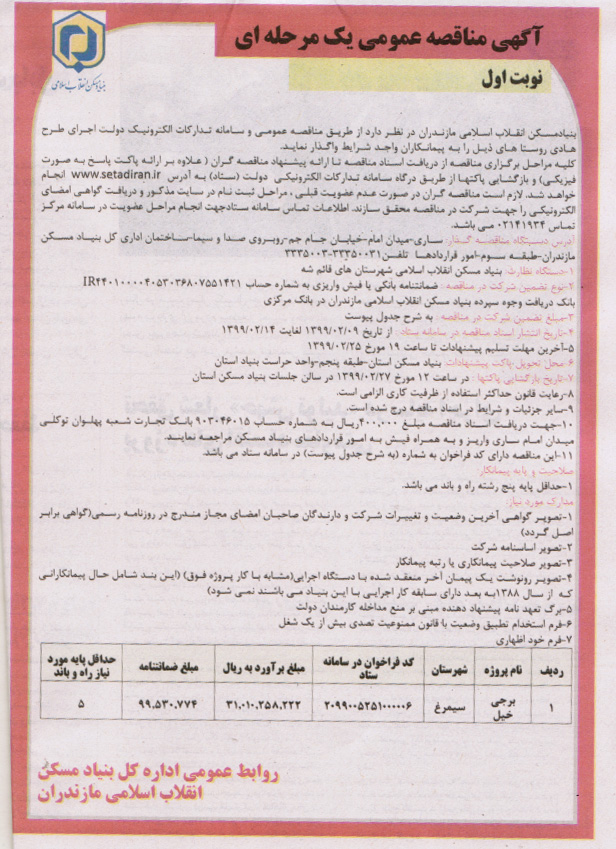 آگهی مناقصه عمومی یک مرحله ای
نوبت اول
بنیاد مسکن انقلاب اسلامی
بنیادمسکن انقلاب اسلامی مازندران در نظر دارد از طریق مناقصه عمومی و سامانه تدارکات الکترونیک دولت اجرای طرح
هادی روستا های ذیل را به پیمانکاران واجد شرایط واگذار نماید.
کلیه مراحل برگزاری مناقصه از دریافت اسناد مناقصه تا ارائه پیشنهاد مناقصه گران ( علاوه بر ارائه پاکت پاسخ به صورت
فیزیکی) و بازگشایی پاکتها از طریق درگاه سامانه تدارکات الکترونیکی دولت (ستاد) به آدرس www.setadiran.ir انجام
خواهد شد. لازم است مناقصه گران در صورت عدم عضویت قبلی ، مراحل ثبت نام در سایت مذکور و دریافت گواهی امضای
الکترونیکی را جهت شرکت در مناقصه محقق سازند. اطلاعات تماس سامانه ستادجهت انجام مراحل عضویت در سامانه مرکز
تماس ۰۲۱۴۱۹۳۴ می باشد.
آدرس دستگاه مناقصه گذار: ساری-میدان امام-خیابان جام جم-روبروی صدا و سیما-ساختمان اداری کل بنیاد مسکن
مازندران-طبقه سوم-امور قراردادها تلفن:۳۳۳۵۰۰۳۱-۳۳۳۵۰۰۳
۱-دستگاه نظارت: بنیاد مسکن انقلاب اسلامی شهرستان های قائم شه
۲-نوع تضمین شرکت در مناقصه : ضمانتنامه بانکی یا فیش واریزی به شماره حساب IR۴۴۰۱۰۰۰۰۴۰۵۳۰۳۶۸۰۷۵۵۱۴۲۱
بانک دریافت وجوه سپرده بنیاد مسکن انقلاب اسلامی مازندران در بانک مرکزی
۳-مبلغ تضمین شرکت در مناقصه: به شرح جدول پیوست
۴-تاریخ انتشار اسناد مناقصه در سامانه ستاد : از تاریخ ۱۳۹۹/۰۲/۰۹ لغایت ۱۳۹۹/۰۲/۱۴
۵-آخرین مهلت تسلیم پیشنهادات تا ساعت ۱۹ مورخ ۱۳۹۹/۰۲/۲۵
۶- محل تحویل پاکت پیشنهادات: بنیاد مسکن استان-طبقه پنجم-واحد حراست بنیاد استان
۷-تاریخ بازگشایی پاکتها : در ساعت ۱۲ مورخ ۱۳۹۹/۰۲/۲۷ در سالن جلسات بنیاد مسکن استان
۸-رعایت قانون حداکثر استفاده از ظرفیت کاری الزامی است.
۹-سایر جزئیات و شرایط در اسناد مناقصه درج شده است.
۱۰-جهت دریافت اسناد مناقصه مبلغ ۴۰۰,۰۰۰ریال به شماره حساب ۹۰۳۰۴۶۰۱۵ بانک تجارت شعبه پهلوان توکلی
میدان امام ساری واریز و به همراه فیش به امور قراردادهای بنیاد مسکن مراجعه نمایند.
۱۱-این مناقصه دارای کد فراخوان به شماره (به شرح جدول پیوست) در سامانه ستاد می باشد.
صلاحیت و پایه پیمانکار:
۱-حداقل پایه پنج رشته راه و باند می باشد.
مدارک مورد نیاز:
۱-تصویر گواهی آخرین وضعیت و تغییرات شرکت و دارندگان صاحبان امضای مجاز مندرج در روزنامه رسمی(گواهی برابر
اصل گردد)
۲-تصویر اساسنامه شرکت
۳-تصویر صلاحیت پیمانکاری یا رتبه پیمانکار
۴-تصویر رونوشت یک پیمان آخر منعقد شده با دستگاه اجرایی(مشابه با کار پروژه فوق) (این بند شامل حال پیمانکارانی
که از سال ۱۳۸۸به بعد دارای سابقه کار اجرایی با این بنیاد می باشند نمی شود)
۵-برگ تعهد نامه پیشنهاد دهنده مبنی بر منع مداخله کارمندان دولت
۶-فرم استخدام تطبیق وضعیت با قانون ممنوعیت تصدی بیش از یک شغل
۷-فرم خود اظهاری
ردیف نام پروژه شهرستان کد فراخوان در سامانه ستاد مبلغ برآورد به ریال مبلغ ضمانتنامه حداقل پایه مورد نیاز راه و باند
۱ برجی خیل سیمرغ ۲۰۹۹۰۰۵۲۵۱۰۰۰۰۰۶ ۳۱,۰۱۰,۲۵۸,۲۲۲ ۹۹,۵۳۰,۷۷۴ ۵
روابط عمومی اداره کل بنیاد مسکن
انقلاب اسلامی مازندران